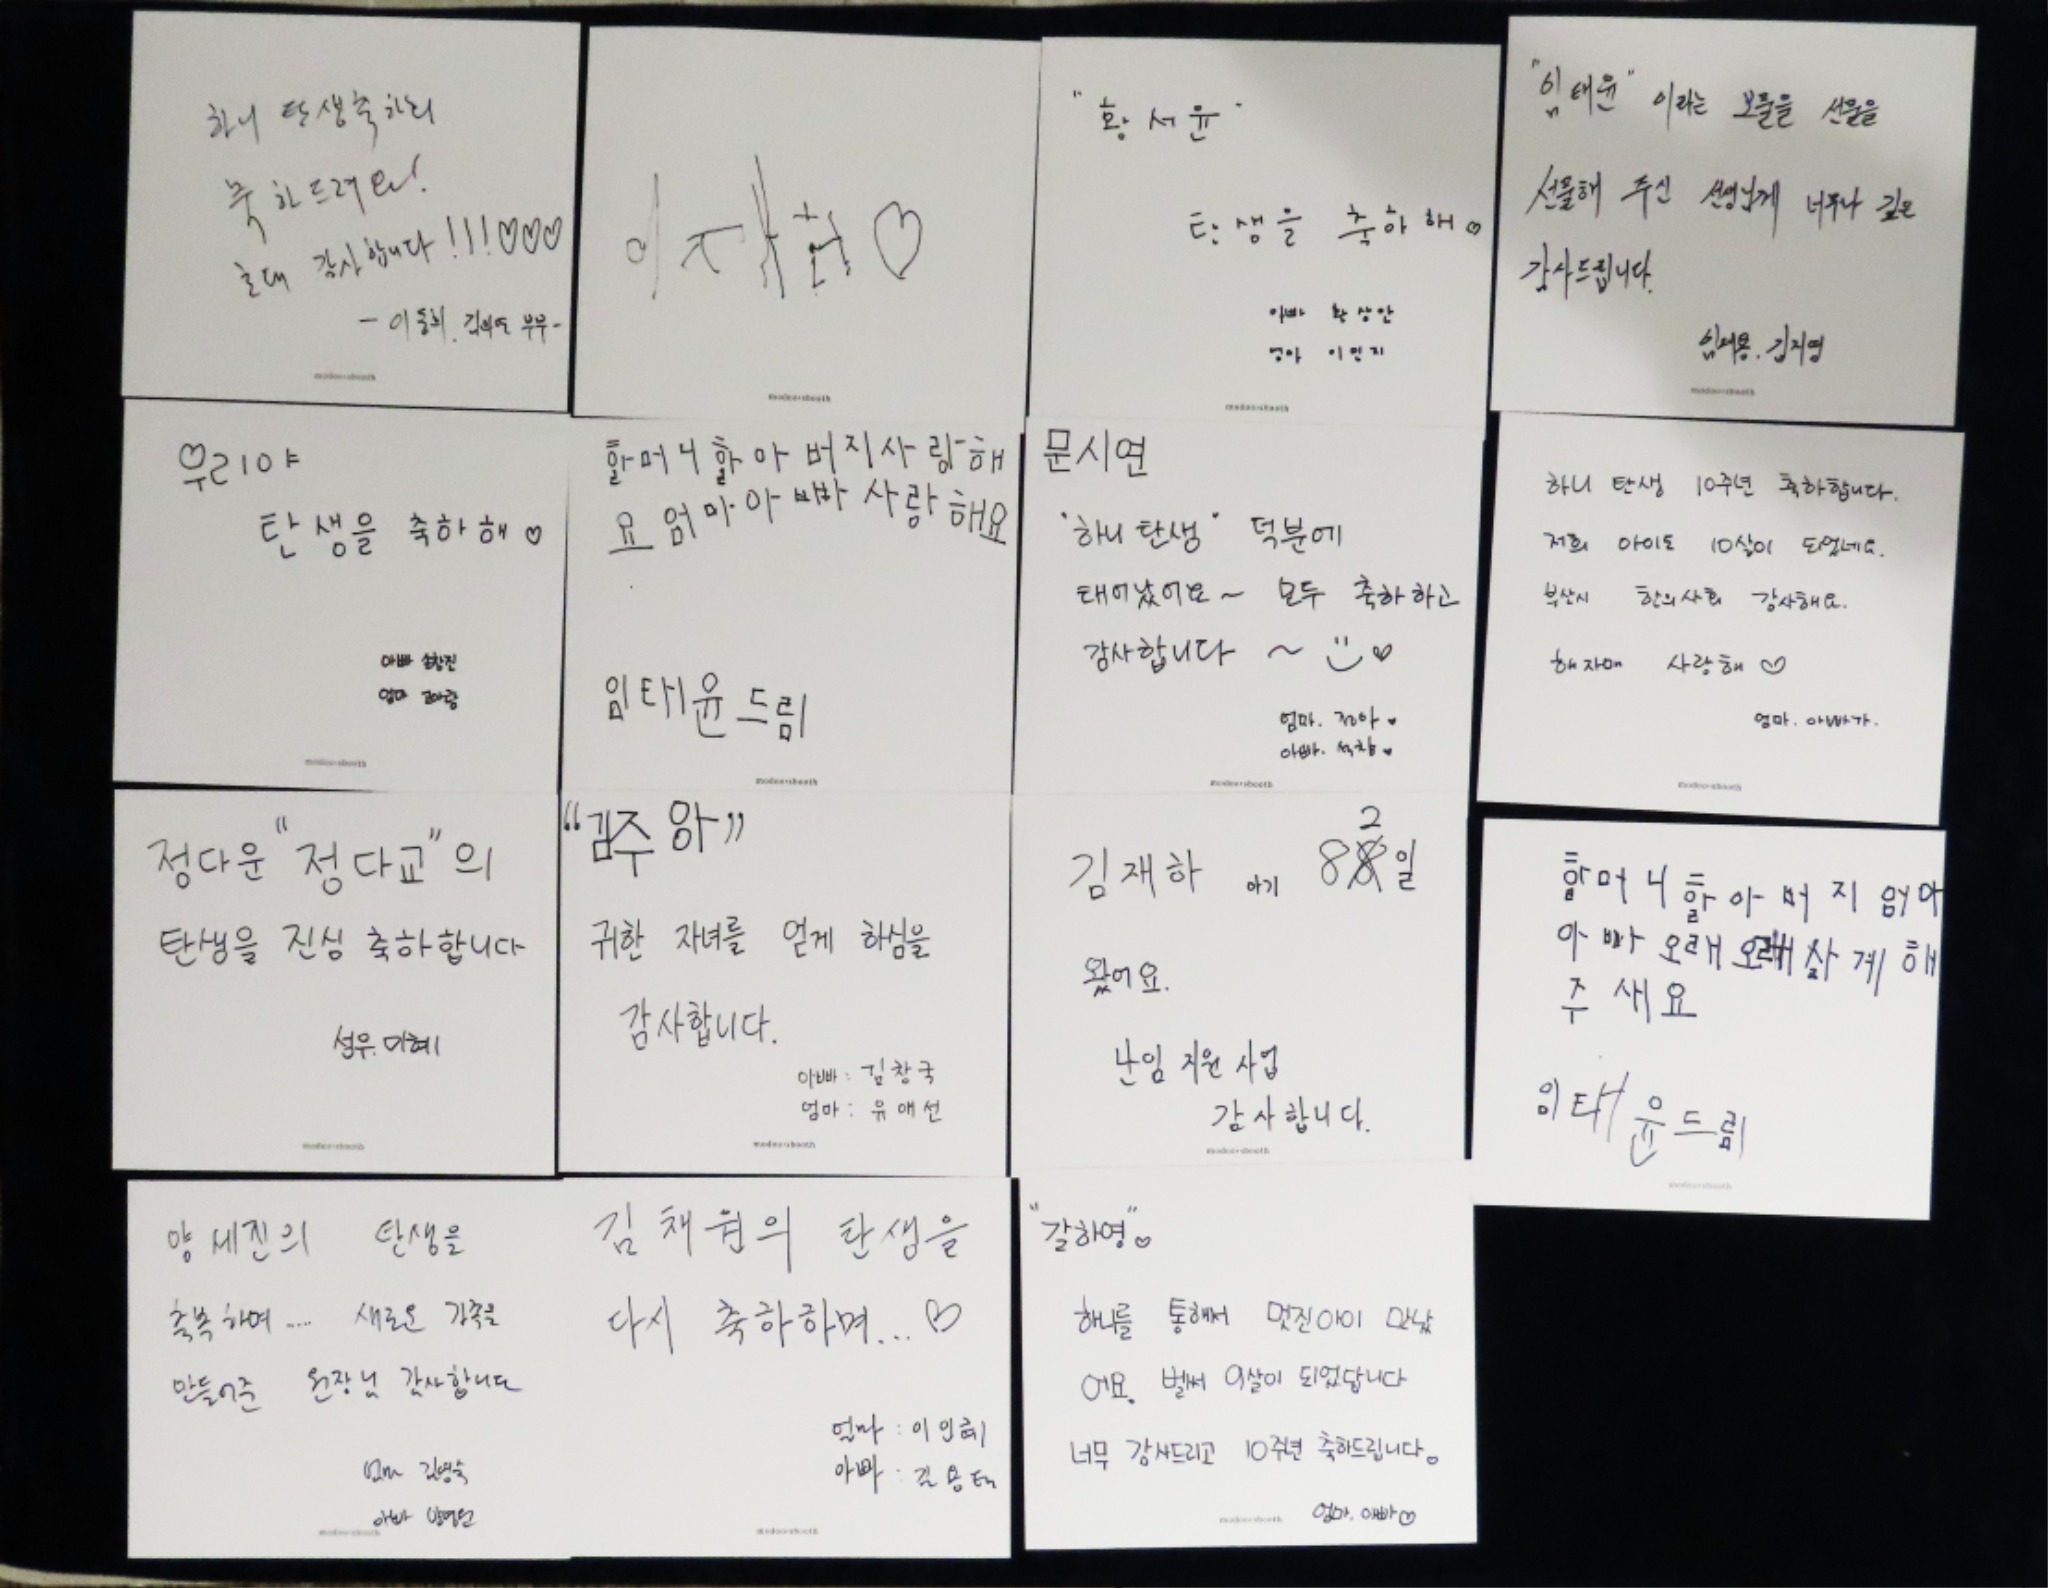 하니 탄생축하회
축하드려요!
초대 감사합니다!!!♡♡♡
-이동희. 부부-
moduv+booth
이재현♡
moduv+booth
"황서윤"
탄생을 축하해♡
아빠 황상안
엄마 이민지
moduv+booth
"임태윤" 이라는 보물을 선물을
선물해 주신 선생님께 너무나 깊은
감사드립니다.
임재용. 김지영
moduv+booth
우리야
탄생을 축하해♡
아빠
엄마
moduv+booth
할머니할아버지사랑해
요 엄마아빠사랑해요
임태윤드림
moduv+booth
문시연
"하니탄생" 덕분에
태어났어요~ 모두 축하하고
감사합니다~ ♡
엄마. 정아♥
아빠. 석창♥
moduv+booth
하니 탄생 10주년 축하합니다.
저희 아이도 10살이 되었네요.
부산시 한의사회 감사해요.
해자매 사랑해♡
엄마. 아빠가.
moduv+booth
정다운 "정다교"의
탄생을 진심 축하합니다
섬우. 미혜
moduv+booth
"김주아"
귀한 자녀를 얻게 하심을
감사합니다.
아빠: 김창국
엄마: 유애선
moduv+booth
김재하 아기 82일
왔어요.
난임 지원 사업
감사합니다.
moduv+booth
할머니할아버지엄마
아빠오래오래살게해
주새요
임태윤드림
moduv+booth
양세진의 탄생을
축복하며.... 새로운 가족을
만들어준 원장님 감사합니다
엄마 김영숙
아빠
moduv+booth
김채원의 탄생을
다시 축하하며...♡
엄마: 이인혜
아빠: 김용태
moduv+booth
"갈하영"♡
하니를 통해서 멋진아이 만났
어요. 벌써 9살이 되었답니다
너무 감사드리고 10주년 축하드립니다♡
엄마. 아빠♡
moduv+booth